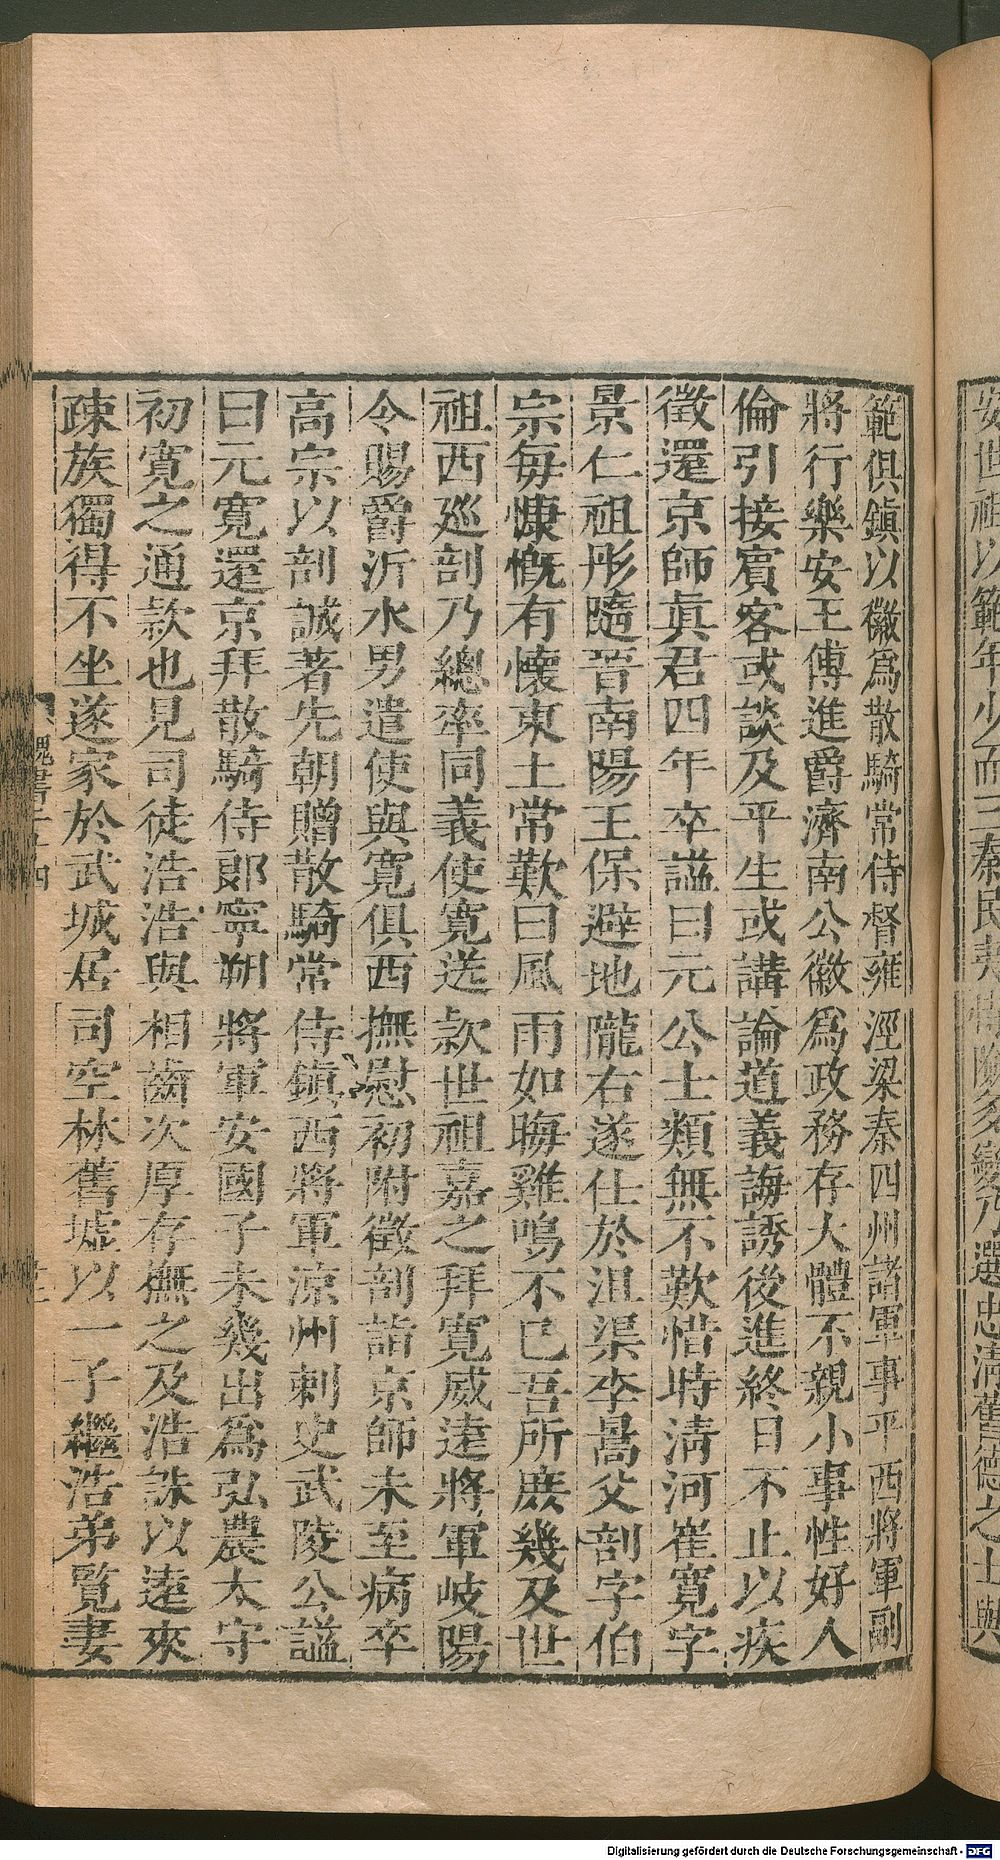 範俱鎮以徽爲散騎常侍督雍涇梁秦四州諸軍事平西將軍副
將行樂安王傅進爵濟南公徽爲政務存大體不親小事性好人
倫引接賓客或談及平生或講論道義誨誘後進終日不止以疾
徵還京師眞君四年卒謚曰元公士類無不歎惜時淸河崔寬字
景仁祖彤隨晉南陽王保避地隴右遂仕於沮渠李暠父剖字伯
宗每慷慨有懷東土常歎曰風雨如晦雞鳴不已吾所庶幾及世
祖西廵剖乃總率同義使寬送款世祖嘉之拜寬威遠將軍岐陽
令賜爵沂水男遣使與寬俱西撫慰初附徵剖詣京師未至病卒
高宗以剖誠著先朝贈散騎常侍鎮西將軍涼州刺史武陵公謚
曰元寬還京拜散騎侍郞寧朔將軍安國子未幾出爲弘農太守
初寬之通款也見司徒浩浩與相齒次厚存撫之及浩誅以遠來
疎族獨得不坐遂家於武城居司空林舊墟以一子繼浩弟覽妻
魏書二十四
安世祖以範年少而三秦民夷恃險多變乃選忠淸舊德之士與
Digitalisierung gefördert durch die Deutsche Forschungsgemeinschaft - DFG